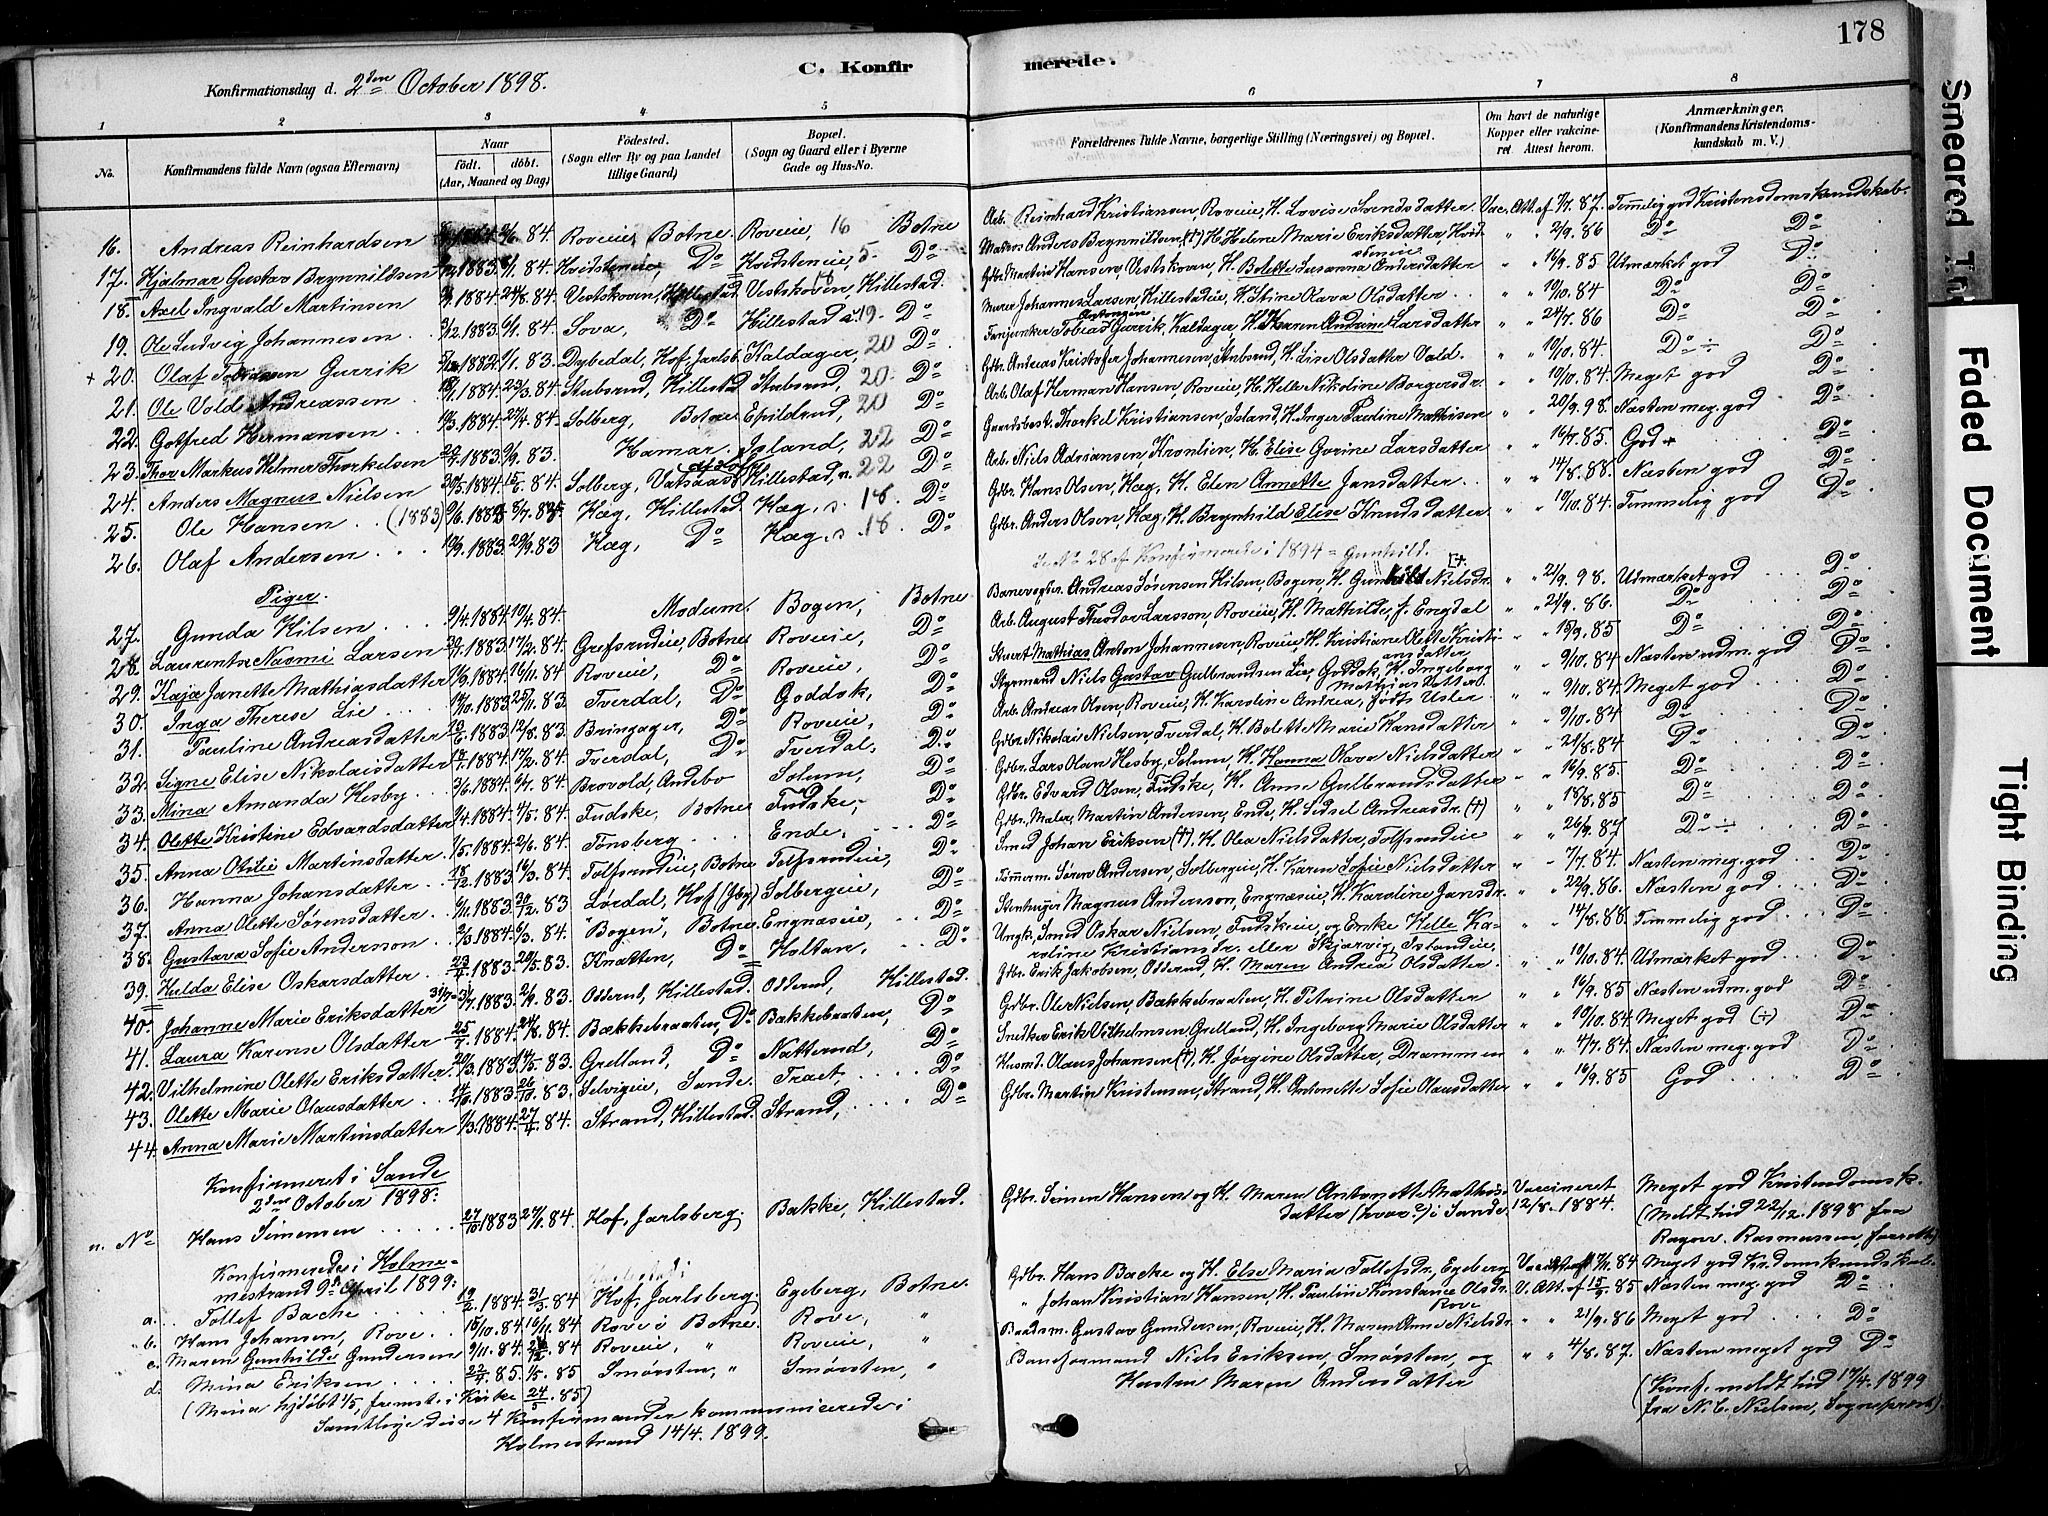 178
C. Konfirmerede.
Konfirmationsdag d. 2den October 1898.
1 2 3 4 5 6 7 8
No. Konfirmandens fulde Navn (ogsaa Efternavn) Naar født, døbt. (Aar, Maaned og Dag) Fødested. (Sogn eller By og paa Landet tillige Gaard) Bopæl. (Sogn og Gaard eller i Byerne Gade og Hus-No. Forældrenes fulde Navne, borgerlige Stilling (Næringsvei) og Bopæl. Om havt de naturlige Kopper eller vaccineret. Attest herom. Anmærkninger. (Konfirmandens Kristendomskundskab m. V.)
16. Andreas Reinhardsen 84. Roveie, Botne. Roveie, 16 Botne Arb. Reinhard Kristiansen, Roveie, H. Lovise Svendsdatter Vac. Att. af 87. Temmelig god Kristendomskundskab.
17. Hjalmar Gustav Brynnildsen 1883. 84. Hvidsteneie, Do Hvidsteneie, 5. Do Anders Brynnildsen, (†) H. Helene Marie Eriksdatter, Hvidsteneie " " 2/9. 86 Do Do
18. Axel Ingvald Martinsen 1884. 24/8. 84. Vestskoven, Hillestad. Vestskoven, 18 Hillestad. Gdbr. Martin Hansen, Vestskoven, H. Bolette Susanna Andersdatter " " 16/9. 85 Udmærket god Do
19. Ole Ludvig Johannesen 1883. 6/1. 84. Sova, Do Hillestad 19. Do Murer Johannes Larsen, Hillestadeie, H. Stine Olava Olsdatter " " 10/10. 84 Do Do
+ 20. Olaf Gurrik 1882. 83. Dybedal, Hof, Jarlsb. Haldager, 20 Do Tobias Gurrik, Haldager, H. Karen Andrine Larsdatter " " 24/7. 86 Do Do
21. Ole Vold Andreassen 1884. 23/3. 84 Stubsrud, Hillestad Stubsrud, 20. Do Gdbr. Andreas Kristofer Johannesen, Stubsrud, H. Lise Olsdatter Vold. " " 10/10. 84. Do ÷ Do
22. Gotfred Hermansen 1884. 27/4. 84. Solberg, Botne 20 Do Arb. Olaf Herman Hansen, Roveie, H. Helle Nikoline Borgersdr. " " 10/10. 84. Meget god Do
23. Thor Markus Helmer Thorkelsen 1883. 83. Hamar. Island, 22 Do Gaardsbest. Thorkel Kristiansen, Island, H. Inger Pauline Mathisen " " 20/9. 98. Næsten meg. god Do
24. Anders Magnus Nielsen 1884. 84. Solberg, Vatsaas Hillestad, n. 22 Do Arb. Niels Adriansen, Kronlien, H. Elise Gurine Larsdatter " " 16/7. 85. God Do
25. Ole Hansen (1883) Hæg, Hillestad Hæg, s. 18. Do Gdbr. Hans Olsen, Hæg, H. Elen Annette Jansdatter " " 14/8. 88. Næsten god Do
26. Olaf Andersen 1883. 29/9. 83 Hæg, Do Hæg, s. 18. Do Gdbr. Anders Olsen, Hæg, H. Brynhild Elise Knudsdatter " " 10/10. 84. Temmelig god Do
Se No 28 af Konfirmerede i 1894 = Gunhild.
Piger.
27. Gunda Hilsen 9/4. 1884. 84. Modum. Bogen, Botne Banevogter Andreas Sørensen Hilsen, Bogen, H. Gunhild Nielsdr. " " 21/9. 98. Udmærket god Do
28. Laurentse Naomi Larsen 1883. 17/2. 84. Grefsrudeie, Botne Roveie, Do Arb. August Theodor Larsson, Roveie, H. Mathilde, f. Engdal " " 21/9. 86. Do Do
29. Kaja Janette Mathiasdatter 1884. 16/11. 84 Roveie, Do Roveie, Do Stuert Mathias Anton Johannesen, Roveie, H. Kristiane Olette Kristiansdatter " " 15/9. 85 Do Do
30. Inga Therese Lie 1883. 25/11. 83 Tverdal, Do Goddok, Do Styrmand Niels Gustav Gulbrandsen Lie, Goddok, H. Ingeborg Mathiasdatter " " 9/10. 84 Næsten udm. god Do
31. Pauline Andreasdatter 1883. 12/8. 83. Bringager, Do Roveie, Do Arb. Andreas Olsen, Roveie, H. Karoline Andrea, født Usler. " " 9/10. 84 Meget god Do
32. Signe Elise Nikolaisdatter 1884. 17/2. 84. Tverdal, Do Tverdal, Do Gdbr. Nikolai Nielsen, Tverdal, H. Bolette Marie Hansdatter " " 9/10. 84 Do Do
33. Mina Amanda Hesby 3/6. 1884. 6/7. 84. Brovold, Andebo Solum, Do Gdbr. Lars Olsen Hesby, Solum, H. Hanna Olava Nielsdatter " " 21/8. 84 Do Do
34. Olette Kristine Edvardsdatter 1884. 4/5. 84. Fudske, Botne Fudske, Do Gdbr. Edvard Olsen, Fudske, H. Anne Gulbrandsdatter " " 16/9. 85. Do Do
35. Anna Otilie Martinsdatter 1884. 2/6. 84. Tønsberg Ende, Do Gdbr. Maler, Martin Andersen, Ende, H. Sidsel Andreasdr. (†) " " 18/8. 85 Do Do
36. Hanna Johansdatter 18/12. 1883. 16/3. 84. Tolfsrudeie, Botne Tolfsrudeie, Do Smed Johan Eriksen (†), H. Olea Nielsdatter, Tolfsrudeie " " 26/9. 87 Do ÷ Do
37. Anna Olette Sørensdatter 1883. 20/12. 83 Lørdal, Hof (Jbg) Solbergeie, Do Tømmerm. Søren Andersen, Solbergeie, H. Karen Sofie Nielsdatter " " 7/7. 84. Næsten meg. god Do
38. Gustava Sofie Andersson 2/3. 1884. 84. "Bogen", Botne Engnæseie, Do Stenhugger Magnus Andersson, Engnæseie, H. Karoline Jansdr. " " 22/9. 86. Næsten god Do
39. Hulda Elise Oskarsdatter 1883. 20/5. 83. Knatten, Do Holtan, Do Ungk. Smed Oskar Nielsen, Fudskeie, og Enke Helle Karoline Kristiansdr. eller Skjærvig, Islandeie, " " 14/8. 88. Temmelig god Do
40. Johanne Marie Eriksdatter 1883. 2/9. 83. Odderud, Hillestad. Odderud, Hillestad. Gdbr. Erik Jakobsen, Odderud, H. Maren Andrea Olsdatter. " " 10/10. 84. Udmærket god Do
41. Laura Karense Olsdatter 1884. 24/8. 84. Bækkebraaten, Do Bækkebraaten, Do Gdbr. Ole Nielsen, Bækkebraaten, H. Petrine Olsdatter " " 16/9. 85 Næsten udm. god Do
42. Vilhelmine Olette Eriksdatter 20/3. 1883. 14/5. 83. Grelland, Do Natterud, Do Snedker Erik Vilhelmsen Grelland, H. Ingeborg Marie Olsdatter " " 10/10. 84. Meget god (÷) Do
43. Olette Marie Olausdatter 1883. 83. Selvigeie, Sande. Traet, Do Husmd. Olaus Johansen (†), H. Jørgine Olsdatter, Drammen " " 4/7. 84. Næsten meg. god Do
44. Anna Marie Martinsdatter 1/3. 1884. 27/4. 84. Strand, Hillestad. Strand, Do Gdbr. Martin Kristensen, Strand, H. Antonette Sofie Olausdatter " " 16/9. 85 God Do
Konfirmeret i Sande
2den October 1898:
n. No Hans Simensen 27/10. 1883 84. Hof, Jarlsberg. Bakke, Hillestad. Gdbr. Simen Hansen og H. Maren Antonette Mathisdatter (hvor?) i Sande. Vaccineret 12/8. 1884. Meget god Kristendomsk. (Meldt hid 22/12. 1898 fra Rasmussen,
Konfirmerede i Holmestrand 9de April 1899:
a. Tollef Bache 19/2. 1884. 31/3. 84 Hof, Jarlsberg. Egeberg, Botne. Gdbr. Hans Bache og H. Else Maria Tollefsdr., Egeberg 84 Meget god Krdomskundskab.
b. Hans Johansen, Rove 15/10. 84 16/11. 84 Rove i Botne. Rove, " " Johan Kristian Hansen, H. Pauline Konstance Olsdr. Rove V. Att. af 85 Næsten meg. god Do
c. Maren Gunhilde Gundersen 9/11. 84. 84 Roveie, " Roveie, " Baadsm. Gustav Gundersen, Roveie, H. Maren Anne Nielsdr. " " 21/9. 86 Meget god Do
d. Mina Eriksen 85. 1/5. 85 Smørsten, " Smørsten, " Baneformand Niels Eriksen, Smørsten, og Hustru Maren Andersdatter " " 4/8. 87. Næsten meget god Do
(Mina hjdøbt 1/5, fremst. i Kirke 24/5. 85)
(Konf. meldt hid 17/4. 1899 fra N. C. Nielsen, Sogneprest)
Samtlige disse 4 Konfirmander kommunicerede i
Holmestrand 14/4. 1899.
Smeared
Faded Document
Tight Binding